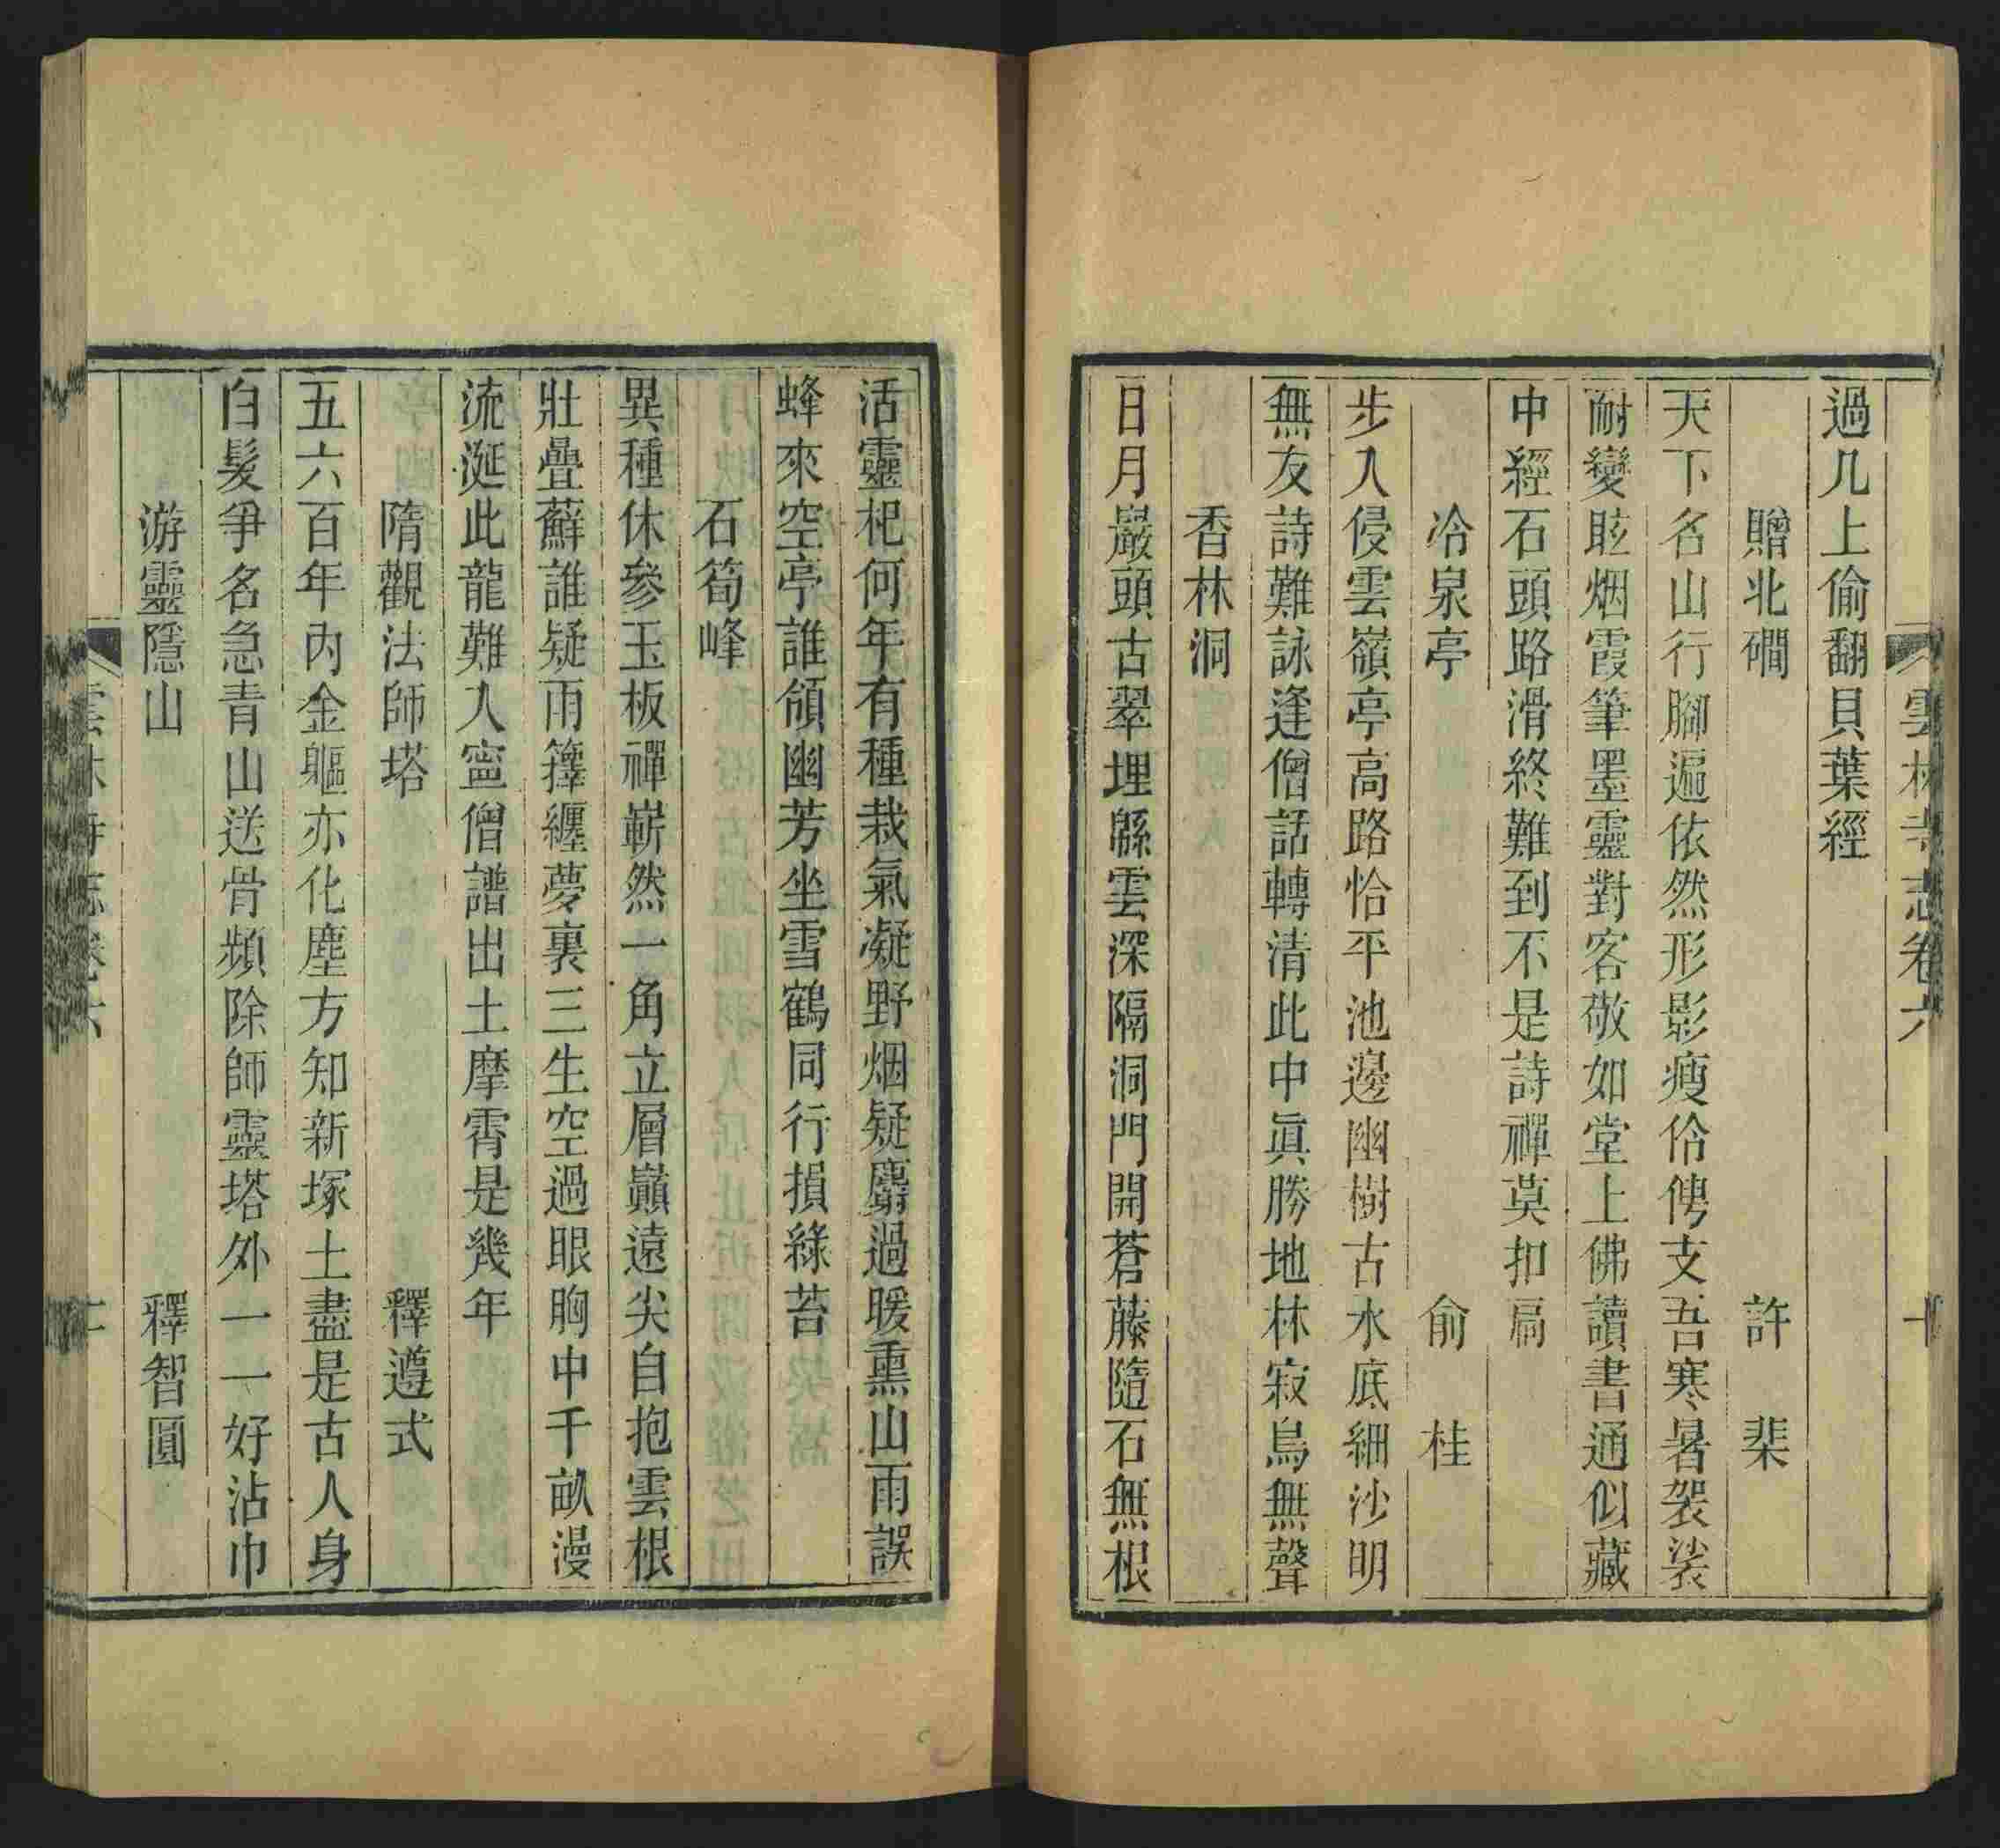 雲林寺志卷六 十
過几上偷翻貝葉經
贈北磵 許棐
天下名山行腳遍依然形影瘦伶俜支吾寒暑袈裟
耐變眩烟霞筆墨靈對客敬如堂上佛讀書通似藏
中經石頭路滑終難到不是詩禪莫扣扃
冷泉亭 俞桂
步入侵雲嶺亭高路恰平池邊幽樹古水底細沙明
無友詩難詠逢僧話轉清此中眞勝地林寂鳥無聲
香林洞
日月巖頭古翠埋緜雲深隔洞門開蒼藤隨石無根
活靈杞何年有種栽氣凝野烟疑麝過暖熏山雨誤
蜂來空亭誰領幽芳坐雪鶴同行損綠苔
石筍峰
異種休參玉板禪嶄然一角立層巔遠尖自抱雲根
壯疊蘚誰疑雨籜纏夢裏三生空過眼胸中千畝漫
流涎此龍難入寍僧譜出土摩霄是幾年
隋觀法師塔 釋遵式
五六百年內金軀亦化塵方知新塚土盡是古人身
白髮爭名急青山送骨頻除師靈塔外一一好沾巾
游靈隱山 釋智圓
雲林寺志卷六